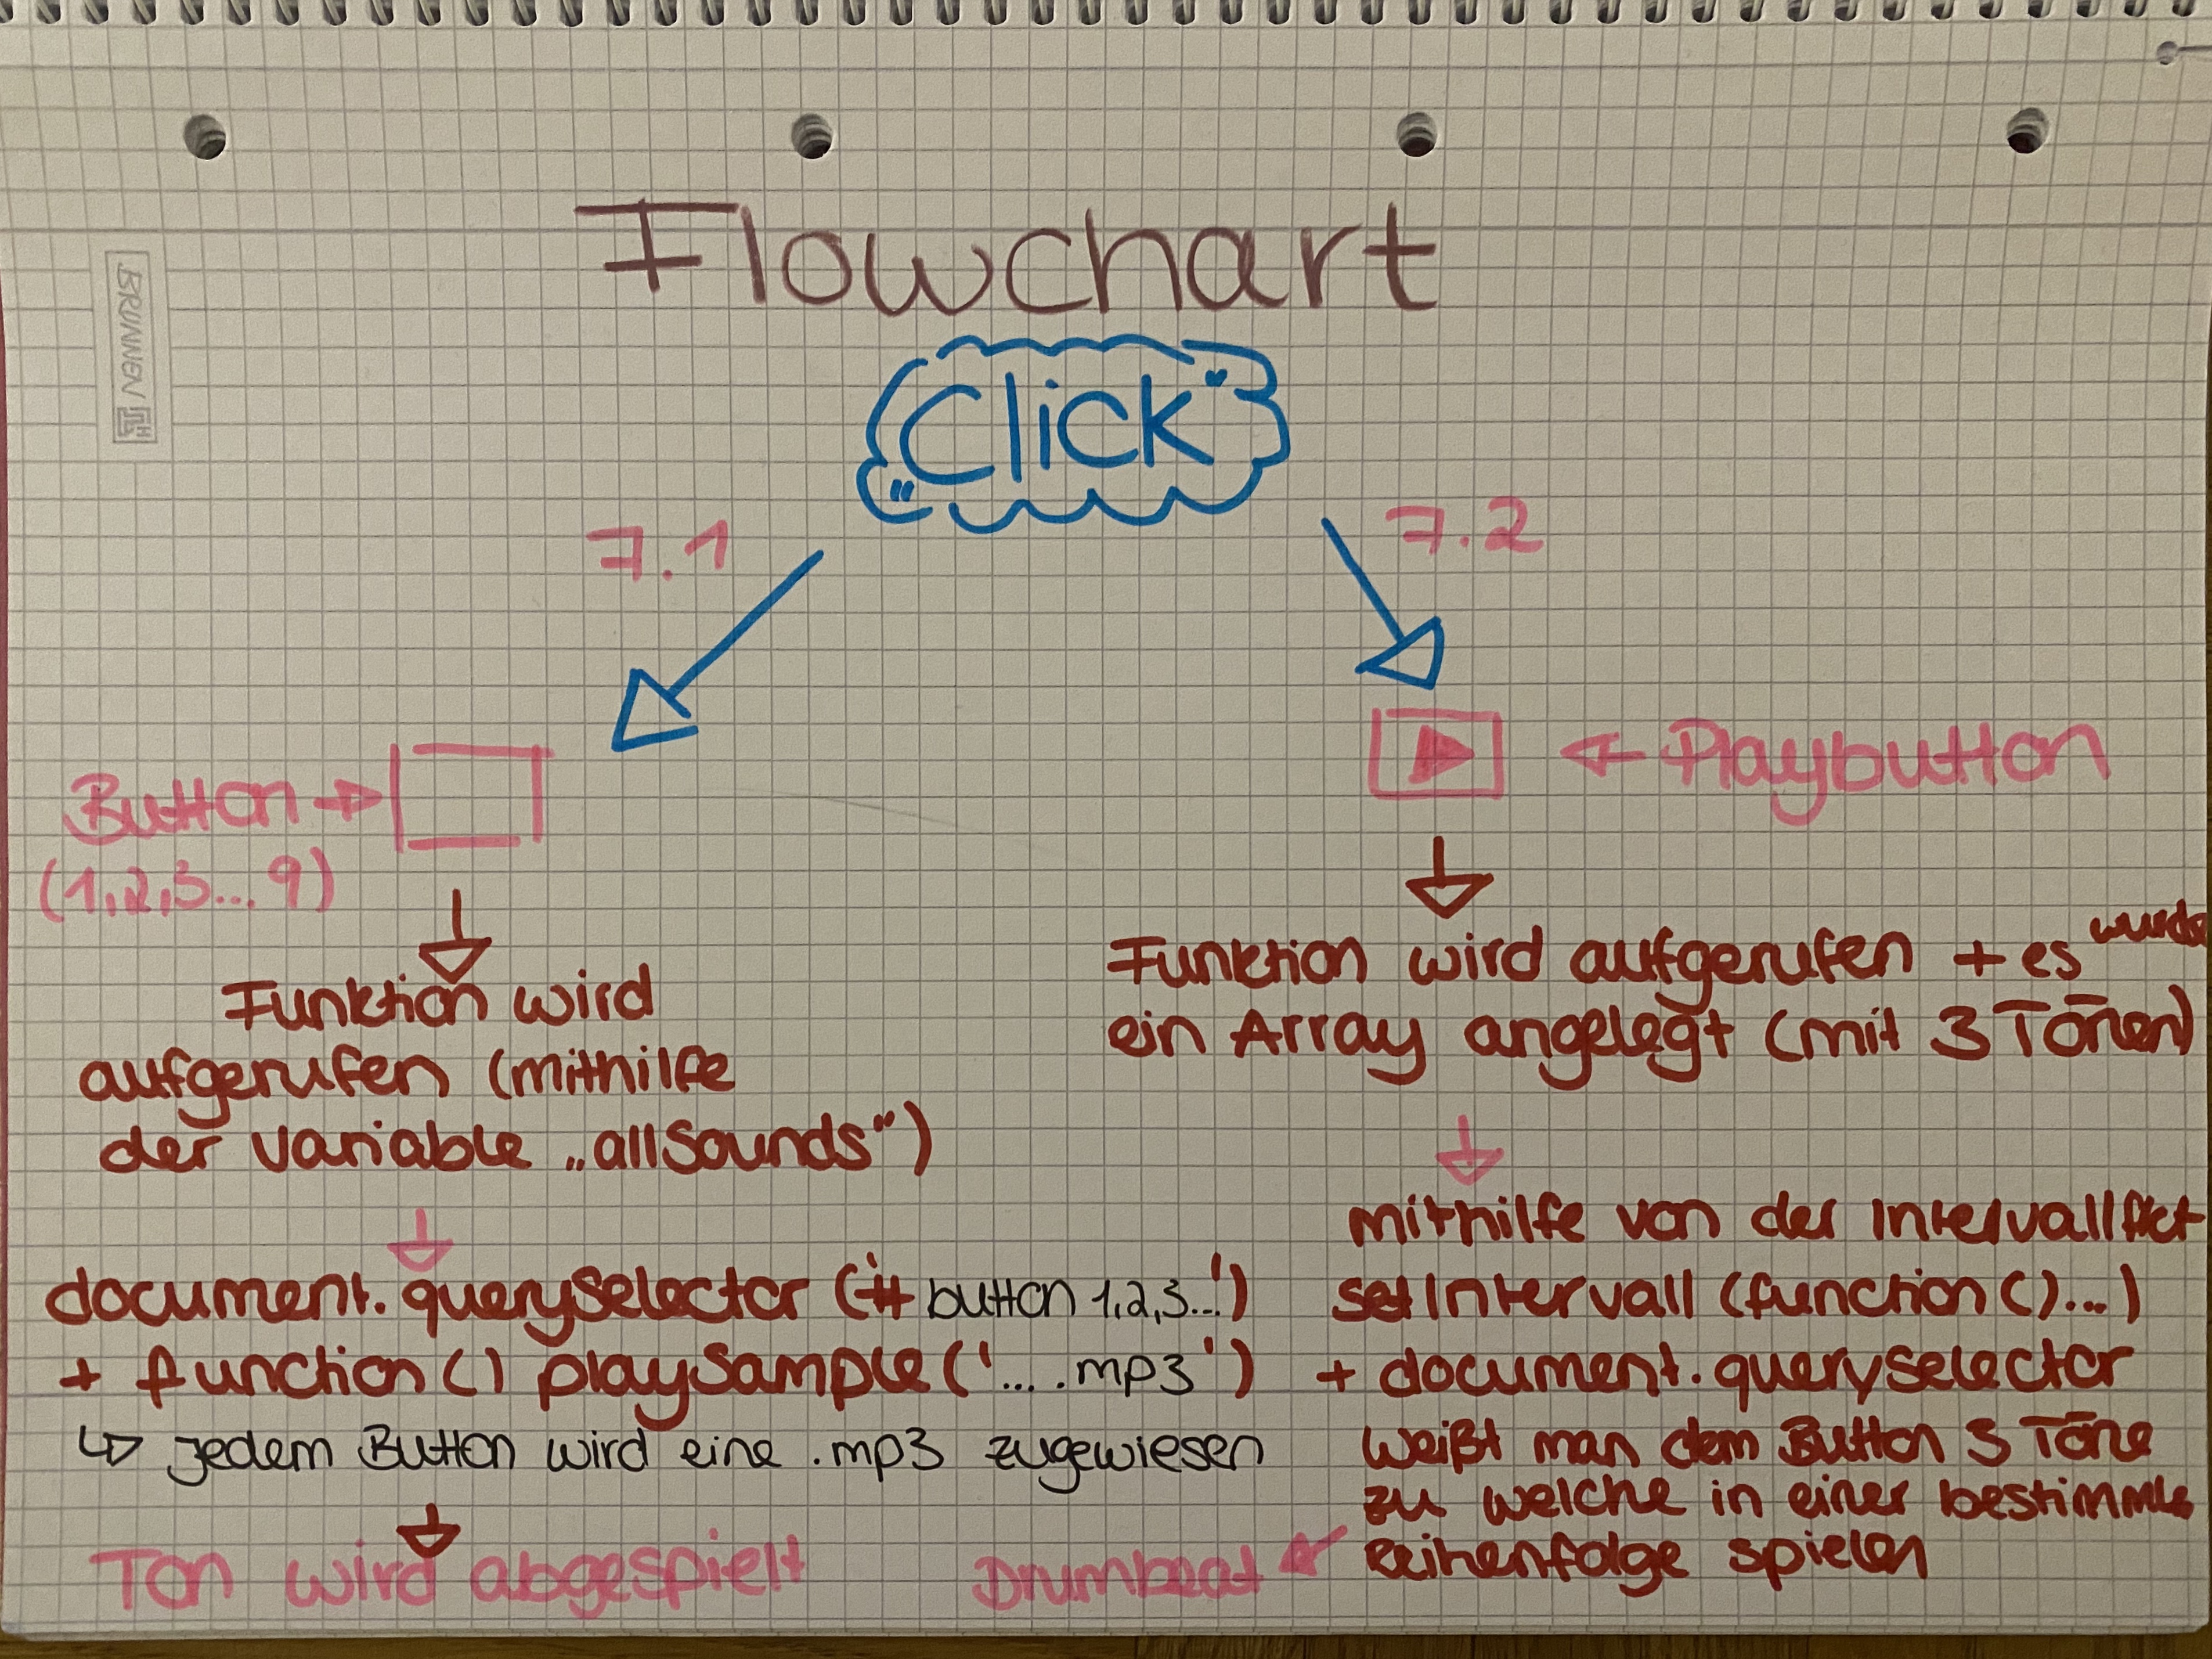 Flowchart
BRUNNEN
„Click“
7.1
7.2
Button
(1,2,3...9)
Playbutton
Funktion wird
aufgerufen (mithilfe
der Variable „allSounds“)
document.querySelector ('# button 1,2,3...')
+ function() playSample('....mp3')
jedem Button wird eine .mp3 zugewiesen
Ton wird abgespielt
Funktion wird aufgerufen + es wurde
ein Array angelegt (mit 3 Tönen)
mithilfe von der Intervallfkt
setIntervall (function()...)
+ document.queryselector
weißt man dem Button 3 Töne
zu welche in einer bestimmte
Reihenfolge spielen
Drumbeat